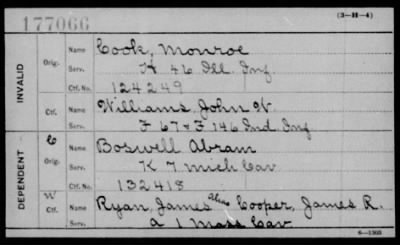 177066
(3—H—4)
INVALID
Orig. Name Cook, Monroe
Serv. H 46 Ill. Inf.
Ctf. No. 124249
Ctf. Name Williams, John W.
Serv. F 67 & F 146 Ind. Inf
DEPENDENT
C Orig. Name Boswell Abram
Serv. K 7 Mich Cav
Ctf. No. 132418
W Ctf. Name Ryan, James alias Cooper, James R.
Serv. A 1 Mass Cav
6—1303